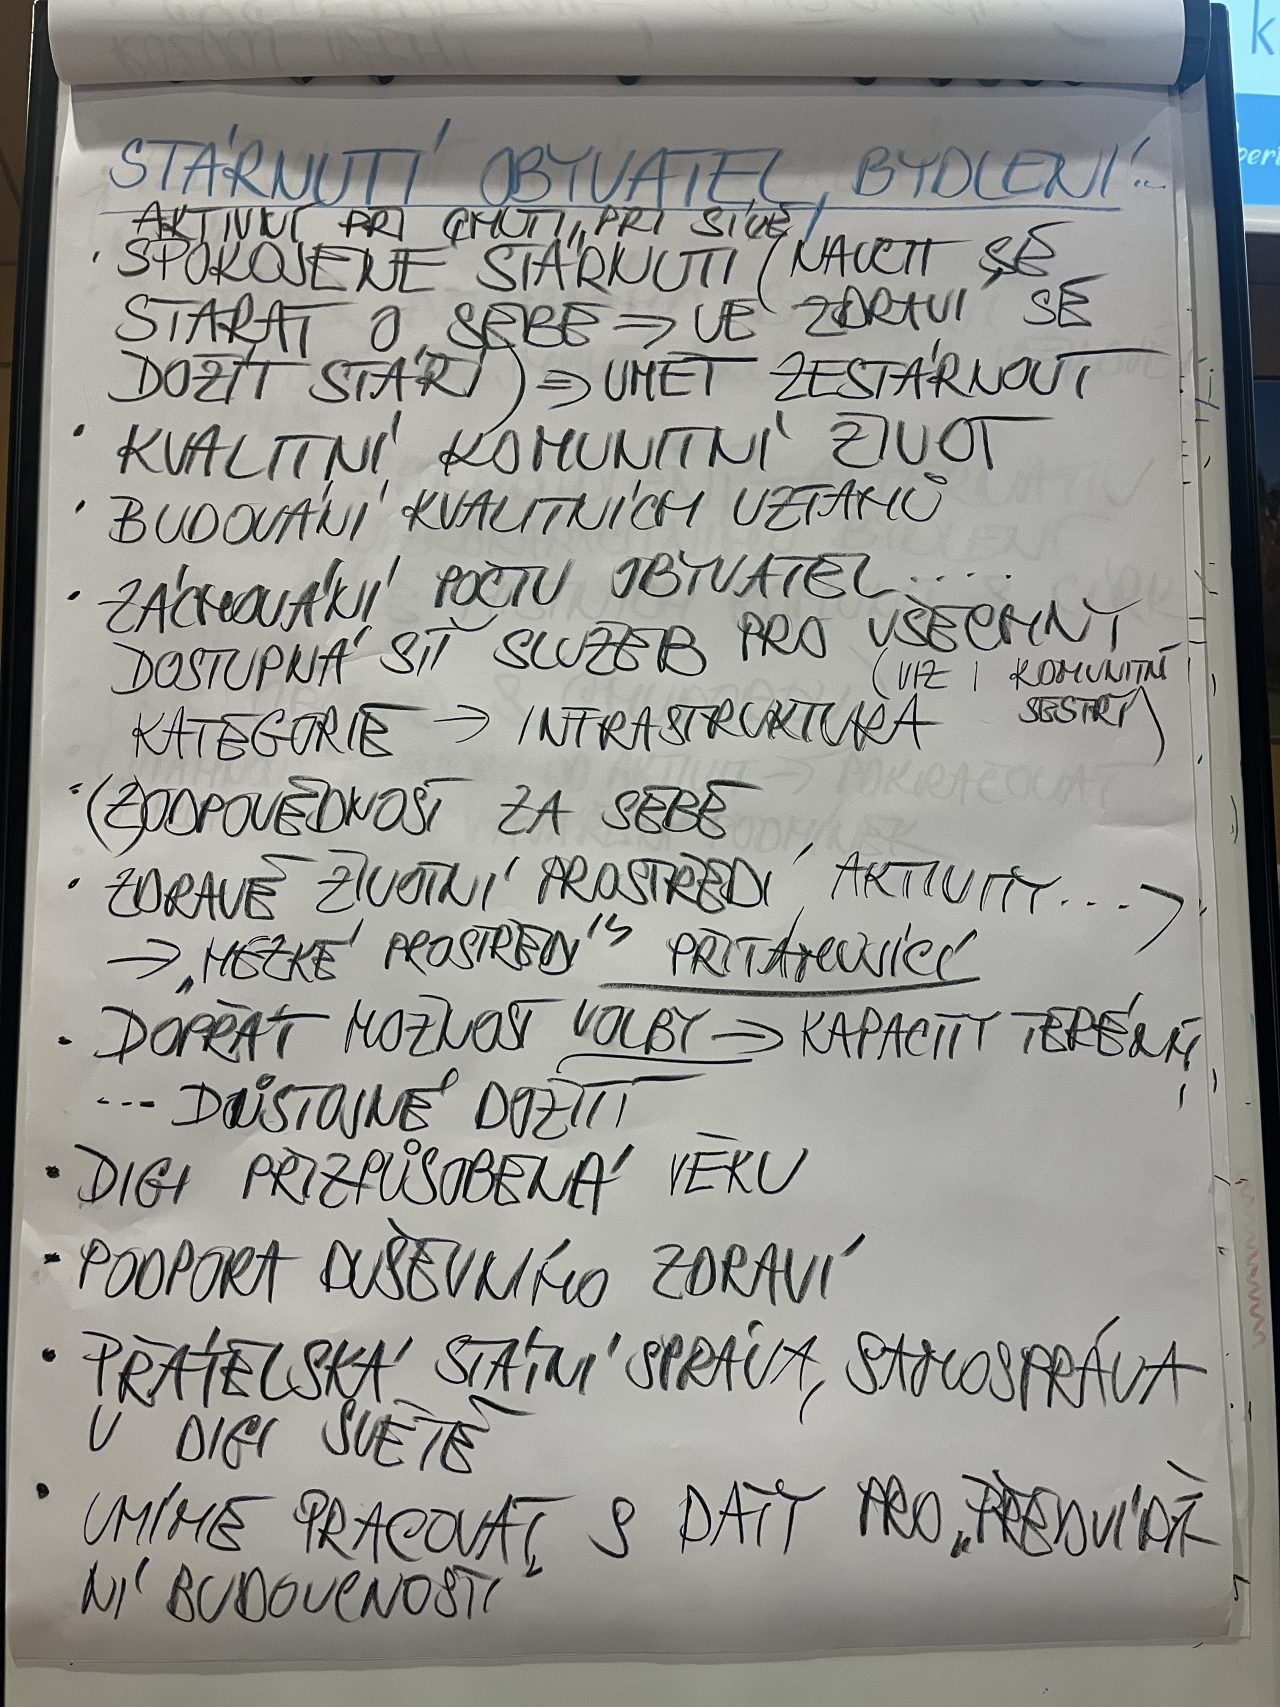 STÁRNUTÍ OBYVATEL, BYDLENÍ..
AKTIVNÍ PŘI CHUTI, PŘI SÍLE,
· SPOKOJENÉ STÁRNUTÍ (NAUČIT SE
STARAT O SEBE => VE ZDRAVÍ SE
DOŽÍT STÁŘÍ) => UMĚT ZESTÁRNOUT
· KVALITNÍ KOMUNITNÍ ŽIVOT
· BUDOVÁNÍ KVALITNÍCH VZTAHŮ
· ZACHOVÁNÍ POČTU OBYVATEL.....
DOSTUPNÁ SÍŤ SLUŽEB PRO VŠECHNY
(VIZ I KOMUNITNÍ
KATEGORIE -> INFRASTRUKTURA SESTRY)
· (Z)ODPOVĚDNOST ZA SEBE
· ZDRAVÉ ŽIVOTNÍ PROSTŘEDÍ, AKTIVITY...->
-> „HEZKÉ PROSTŘEDÍ" PŘITAHUJÍCÍ
· DOPŘÁT MOŽNOST VOLBY => KAPACITY TERÉNNÍ,
--- DŮSTOJNÉ DOŽITÍ
· DIGI PŘIZPŮSOBENÁ VĚKU
· PODPORA DUŠEVNÍHO ZDRAVÍ
· PŘÁTELSKÁ STÁTNÍ SPRÁVA, SAMOSPRÁVA
V DIGI SVĚTĚ
· UMÍME PRACOVAT S DATY PRO „PŘEDVÍDÁ
NÍ BUDOUCNOSTI"